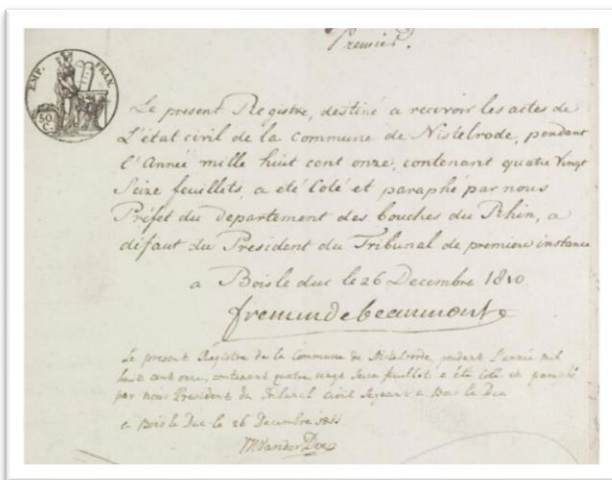 Premier.
EMP. FRAN.
50 C.
Le present Registre, destiné a recevoir les actes de
L'état civil de la Commune de Nistelrode, pendant
l'Année mille huit cent onze, contenant quatre Vingt
Seize feuillets, a été Coté et paraphé par nous
Préfet du Departement des bouches du Rhin, a
défaut du President du Tribunal de premiere instance
a Bois le duc le 26 Decembre 1810
fremindebeaumont
Le present Registre de la Commune de Nistelrode, pendant L'année mil
huit cent onze, contenant quatre vingt Seize feuillets a été Coté et paraphé
par nous President du Tribunal Civil Seyeant a Bois le Duc
a Bois le Duc le 26 Decembre 1811